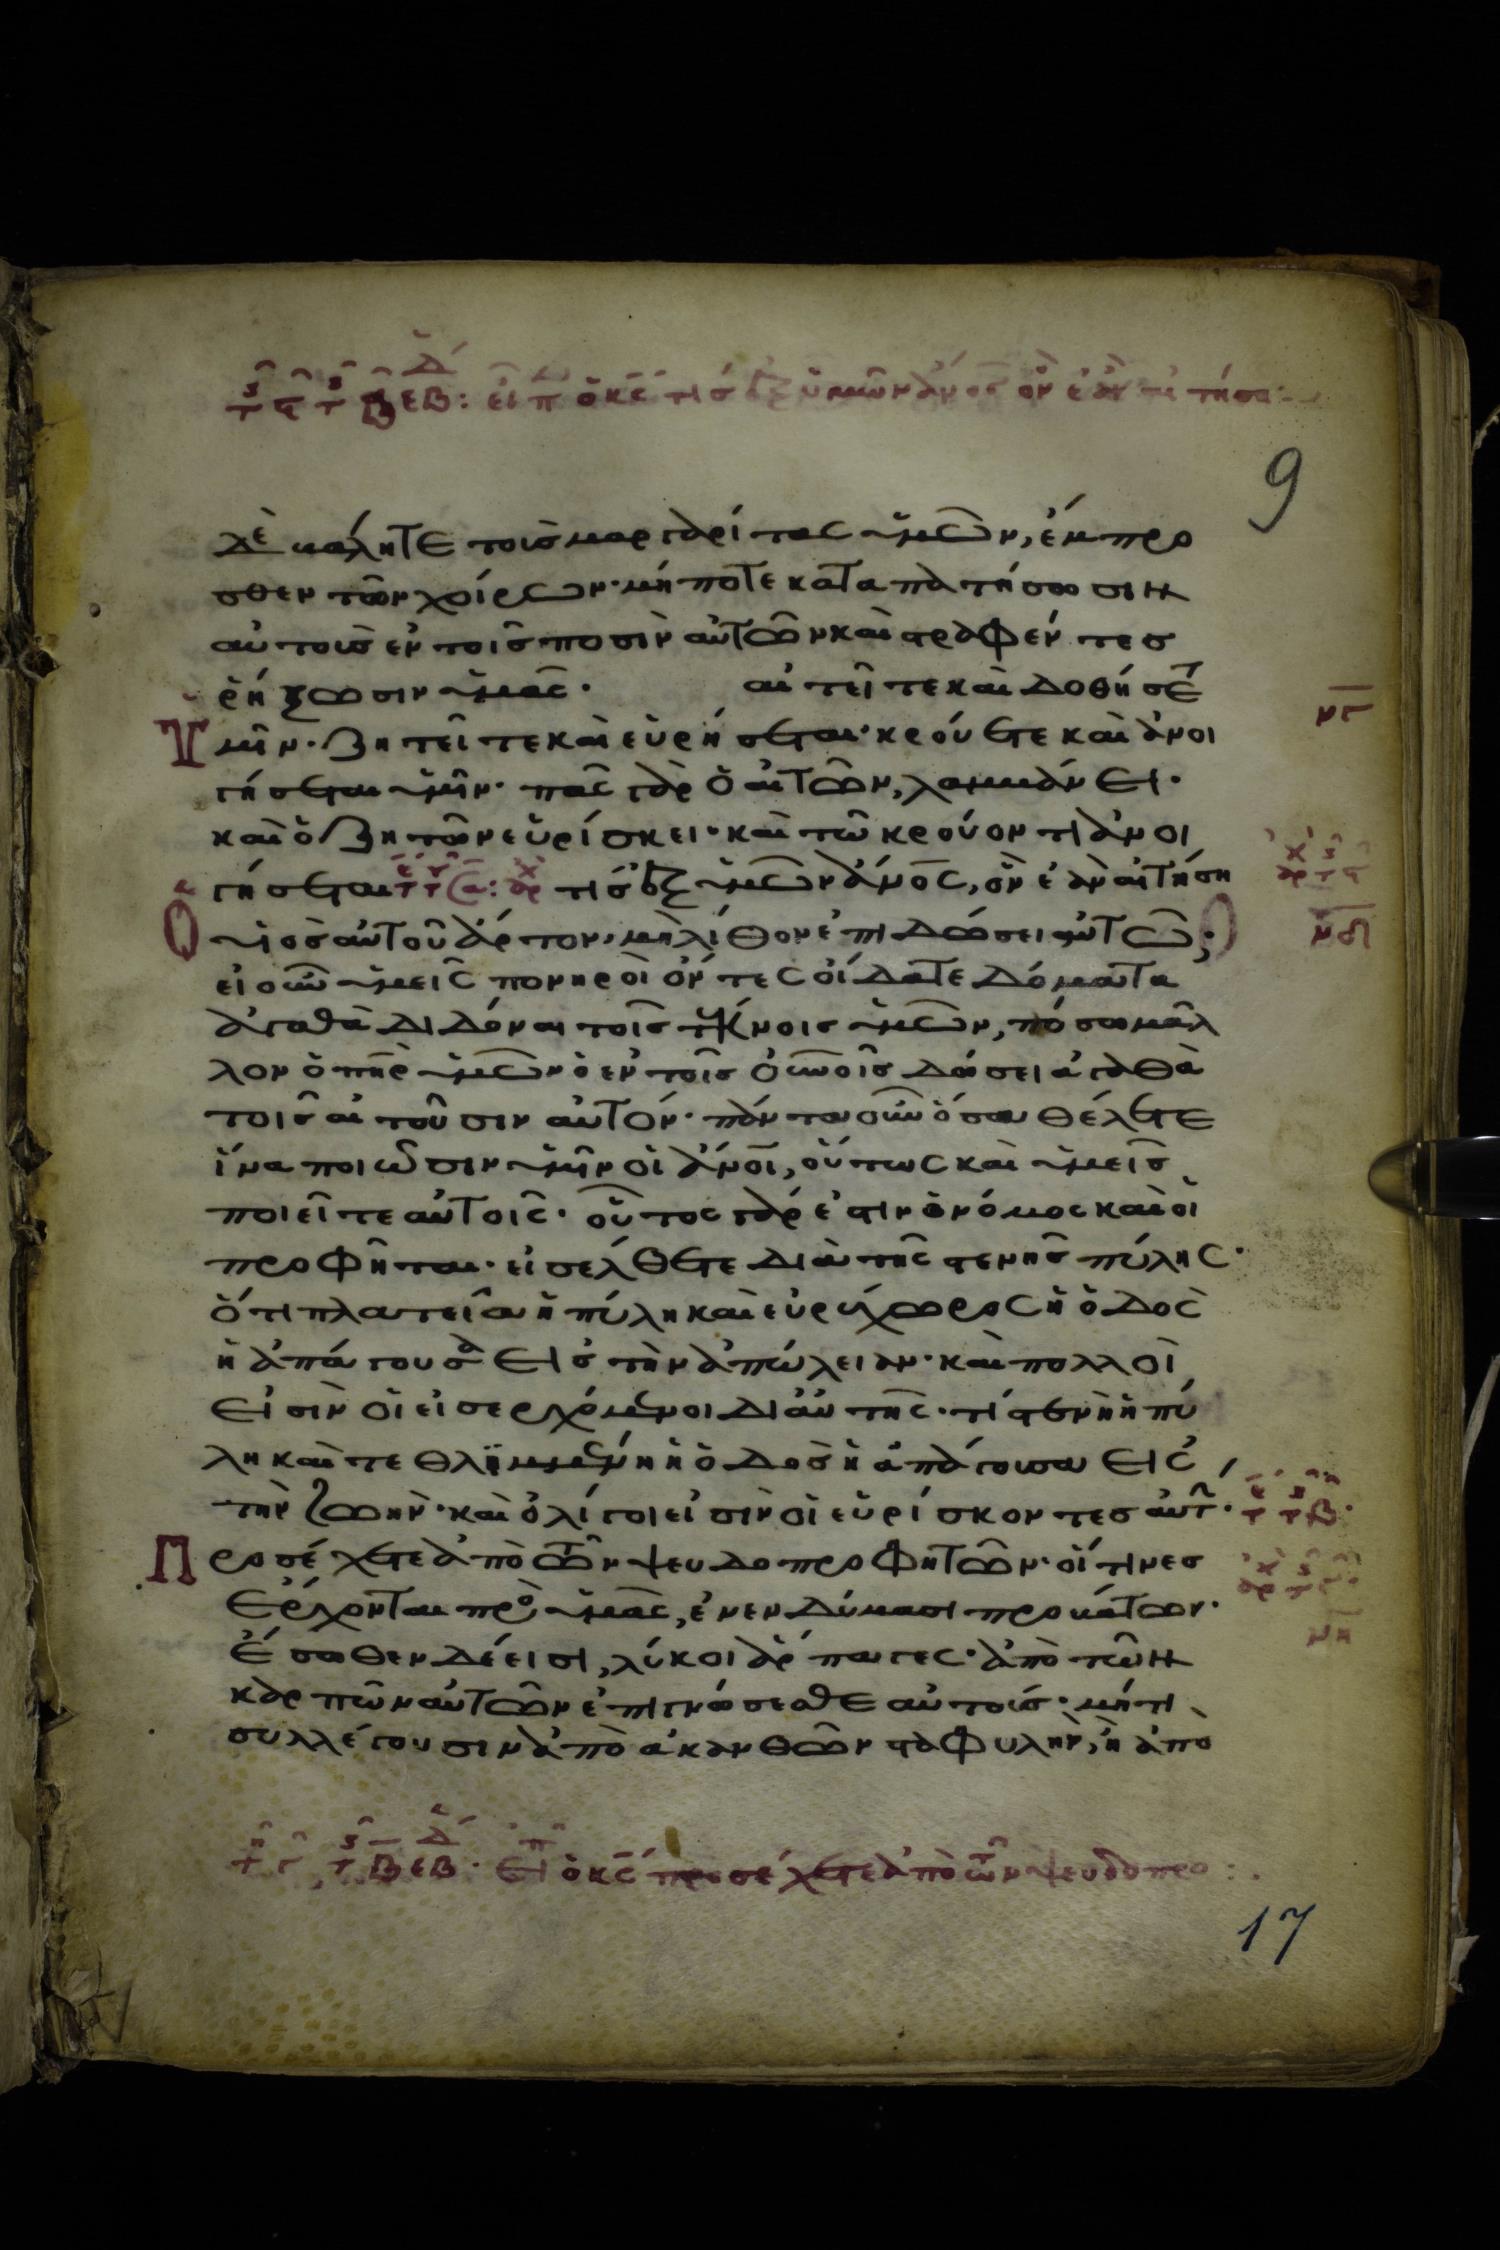 εἶπ ὁ κς τίς ἐξ ὑμῶν ἄνος ὃν ἐὰν αἰτήση
9
δὲ βάλητε τοὺς μαργαρίτας ὑμῶν, ἔμπρο
σθεν τῶν χοίρων· μήποτε καταπατήσωσιν
αὐτοὺς ἐν τοῖς ποσὶν αὐτῶν καὶ στραφέντες
ῥήξωσιν ὑμᾶς· αἰτεῖτε καὶ δοθήσετ
Ὑμῖν· ζητεῖτε καὶ εὑρήσεται· κρούετε καὶ ἀνοι
γήσεται ὑμῖν· πᾶς γὰρ ὁ αἰτῶν, λαμβάνει·
καὶ ὁ ζητῶν εὑρίσκει· καὶ τῶ κρούοντι ἀνοι
γήσεται τίς ἐξ ὑμῶν ἄνος, ὃν ἐὰν αἰτήση
Ὁ υἱὸς αὐτοῦ ἄρτον, μὴ λίθον ἐπιδώσει αὐτῶ;
εἰ οὖν ὑμεῖς πονηροὶ ὄντες οἴδατε δόματα
ἀγαθὰ διδόναι τοῖς τέκνοις ὑμῶν, πόσω μᾶλ
λον ὁ πηρ ὑμῶν ὁ ἐν τοῖς οὐνοῖς δώσει ἀγαθὰ
τοῖς αἰτοῦσιν αὐτόν· πάντα οὖν ὅσα θέλετε
ἵνα ποιῶσιν ὑμῖν οἱ ἄνοι, οὕτως καὶ ὑμεῖς
ποιεῖτε αὐτοῖς· οὗτος γάρ ἐστιν ὁ νόμος καὶ οἱ
προφῆται· εἰσέλθετε διὰ τῆς στενῆς πύλης·
ὅτι πλατεῖα ἡ πύλη καὶ εὐρύχωρος ἡ ὁδὸς
ἡ ἀπάγουσα εἰς τὴν ἀπώλειαν· καὶ πολλοὶ
εἰσὶν οἱ εἰσερχόμενοι δι αὐτῆς· τί στενὴ ἡ πύ
λη καὶ τεθλϊμμένη ἡ ὁδὸς ἡ ἀπάγουσα εἰς
τὴν ζωὴν· καὶ ὀλίγοι εἰσὶν οἱ εὑρίσκοντες αὐτ·
Προσέχετε ἀπὸ τῶν ψευδοπροφητῶν· οἵτινες
ἔρχονται πρὸ ὑμᾶς, ἐν ενδύμασι προβάτων·
ἔσωθεν δέ εισι, λύκοι ἅρπαγες· ἀπὸ τῶν
καρπῶν αὐτῶν ἐπιγνώσεσθε αὐτούς· μήτι
συλλέγουσιν ἀπὸ ἀκανθῶν σταφυλὴν, ἢ ἀπὸ
εἶπ ὁ κς προσέχετε ἀπὸ τῶν ψευδοπρο
17